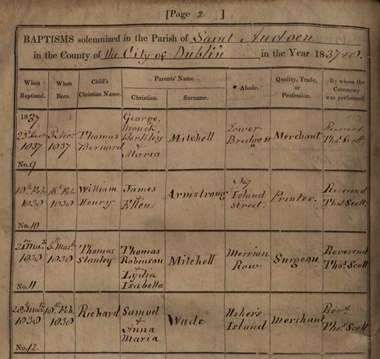 [Page 2]
BAPTISMS solemnized in the Parish of Saint Audoen
in the County of the City of Dublin in the Year 1837
When Baptized. When Born. Child's Christian Name. Parents' Name. Christian. Surname. Abode. Quality, Trade, or Profession. By whom the Ceremony was performed.
1837
1837 1837 Thomas Bernard George Monck Berkley & Maria Mitchell Tower Bridge st Merchant Reverend Thos. Scott
No. 9
1838 1838 William Henry James & Ellen Armstrong Island Street Printer Reverend Thos. Scott
No. 10
1838 1838 Thomas Stanley Thomas Robinson & Lydia Isabella Mitchell Merrion Row Surgeon Reverend Thos. Scott
No. 11
1838 1838 Richard Samuel & Anna Maria Wade Usher's Island Merchant Revd. Thos. Scott
No. 12